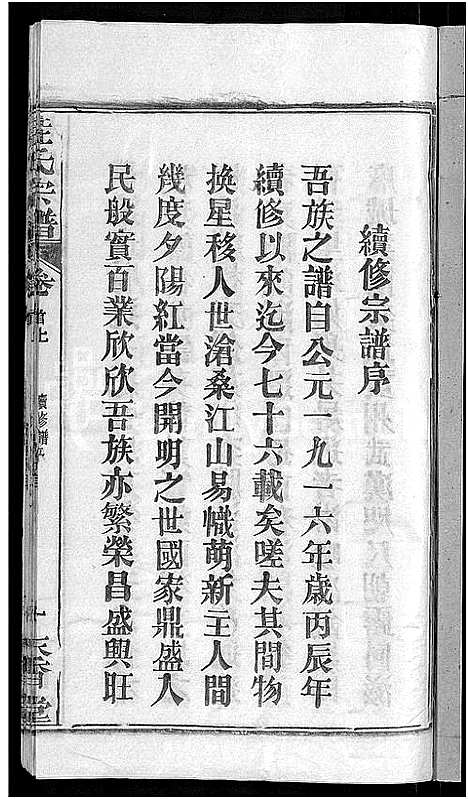 續修宗譜序
吾族之譜自公元一九一六年歲丙辰年
續修以來迄今七十六載矣嗟夫其間物
換星移人世滄桑江山易幟萌新主人間
幾度夕陽紅當今開明之世國家鼎盛人
民般實百業欣欣吾族亦繁榮昌盛興旺
氏宗譜
卷首上
續修譜序
堂